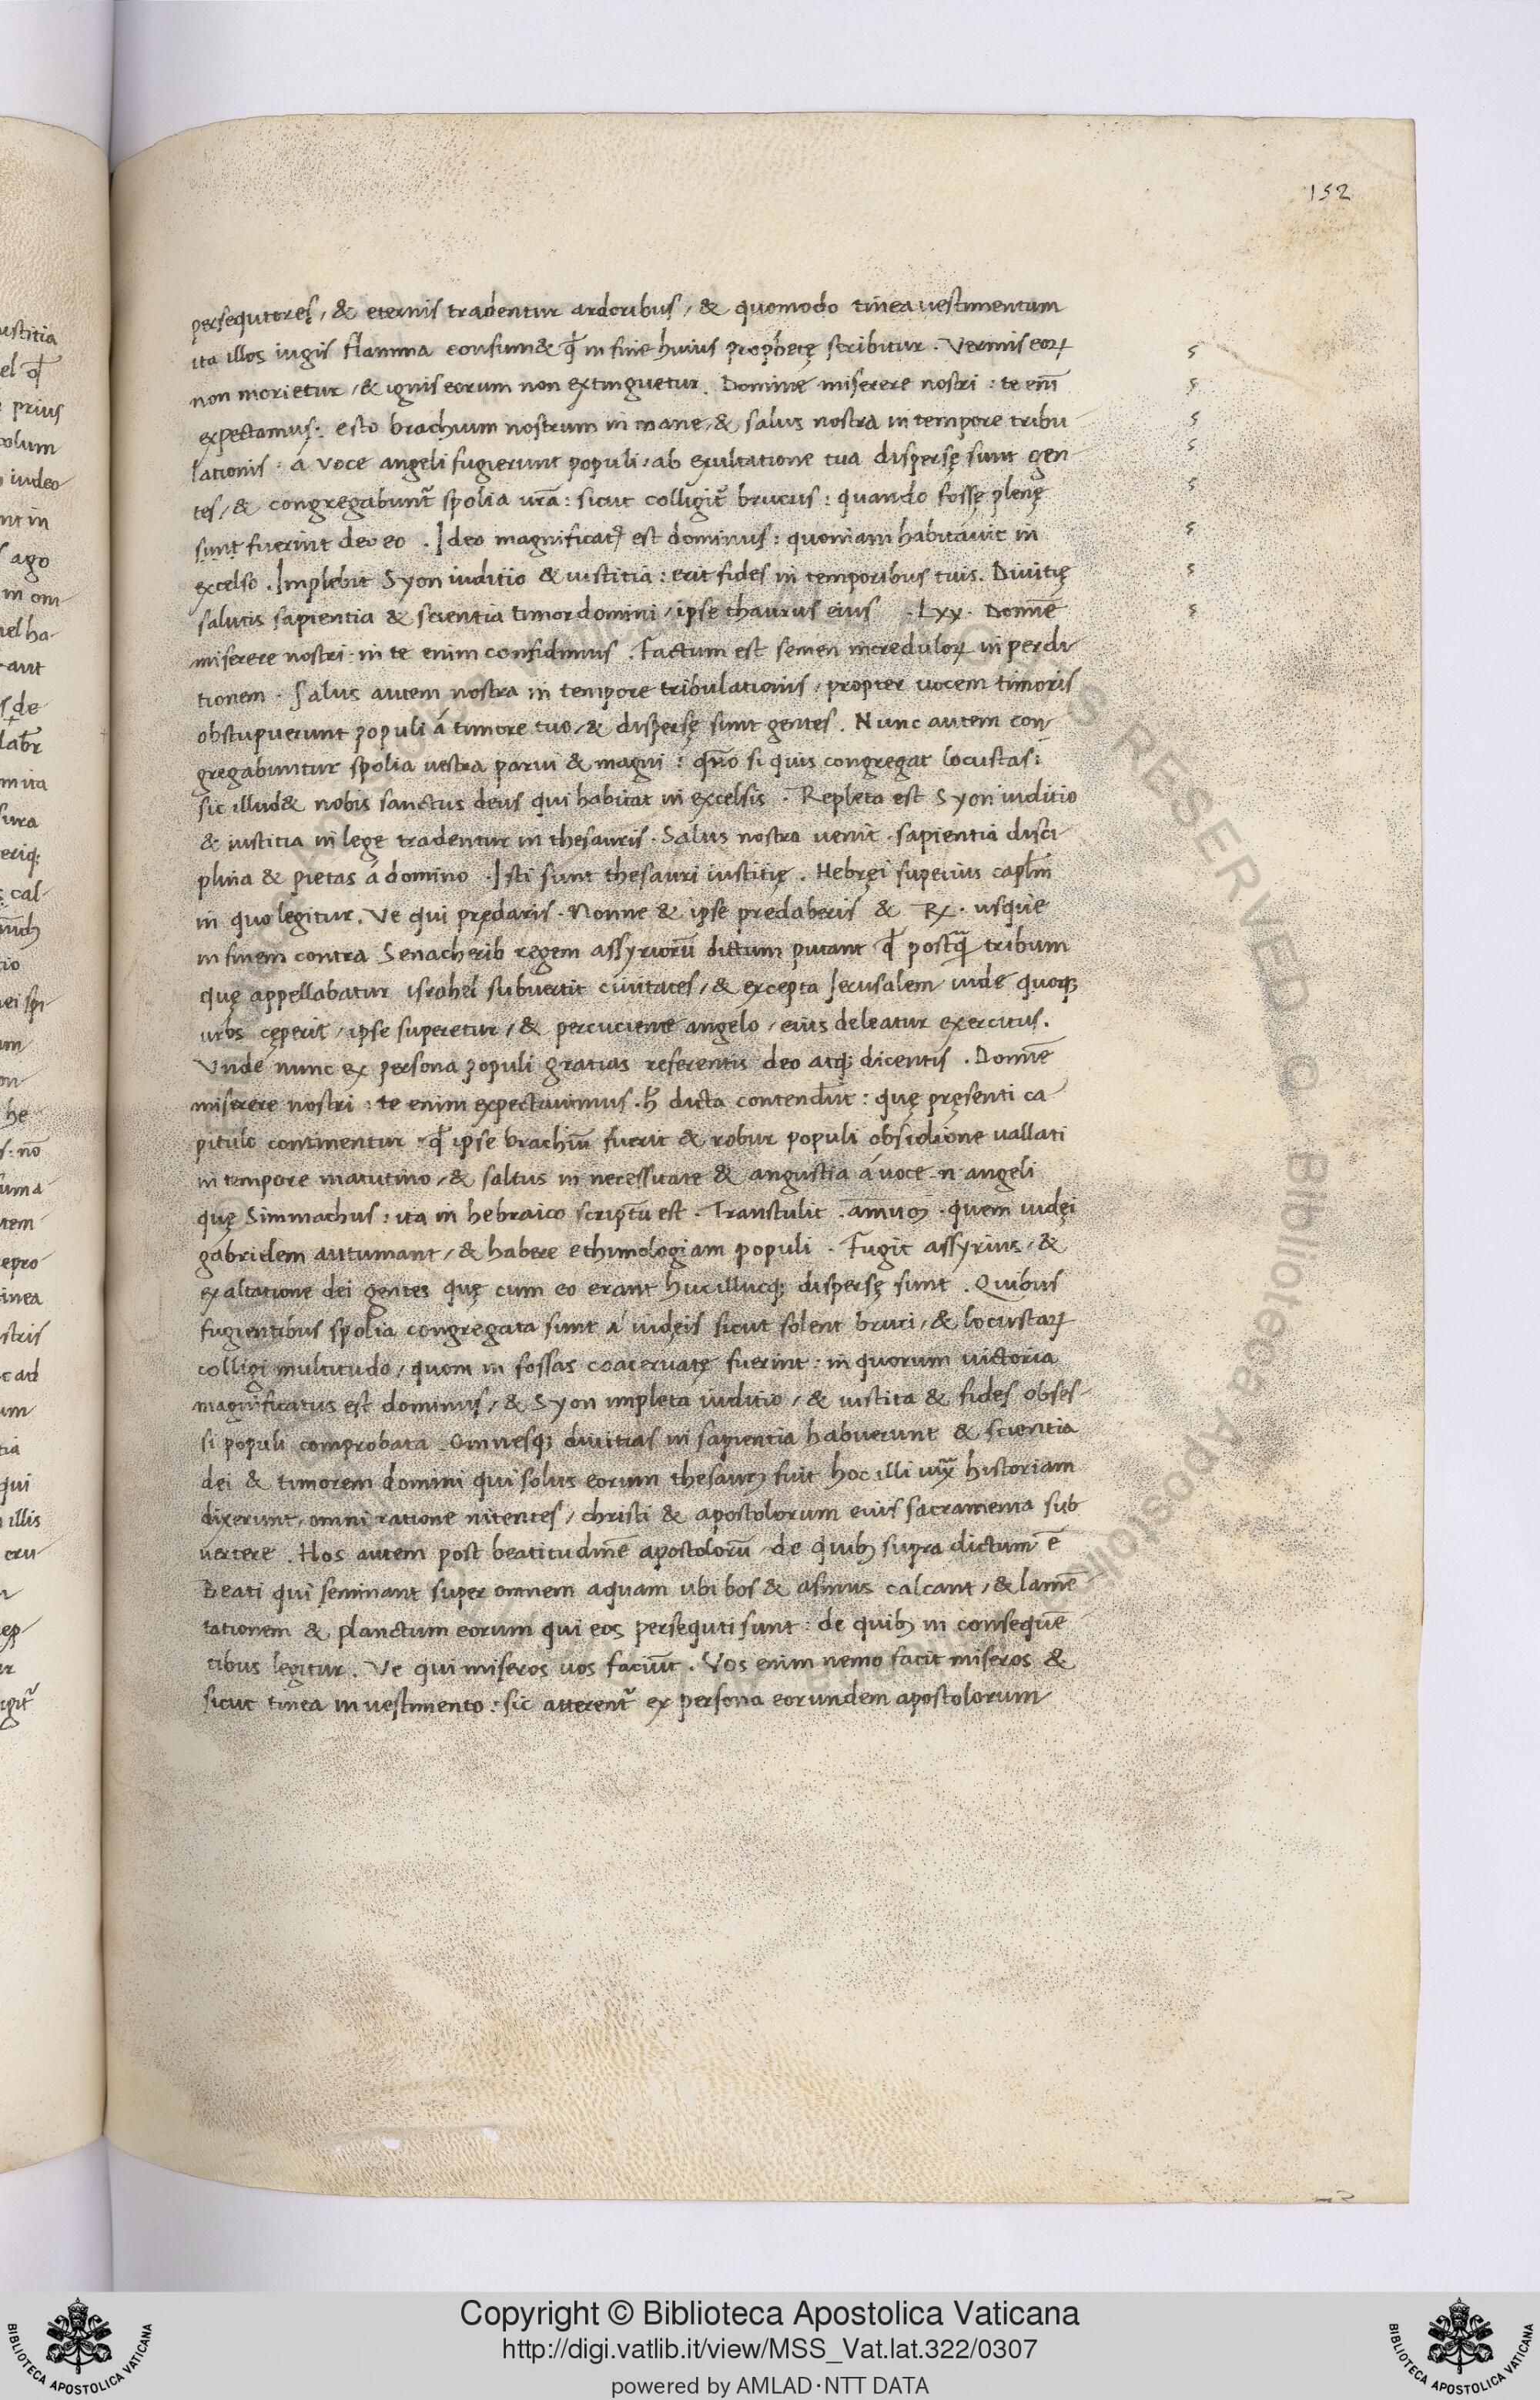 152
persequtores, & eternis tradentur ardoribus, & quomodo tinea uestimentum
ita illos iugis flamma consum& qđ in fine huius prophetę scribitur. Vermis eoꝝ
non morietur, & ignis eorum non extinguetur. Domine miserere nostri: te enĩ
expectamus: esto brachium nostrum in mane, & salus nostra in tempore tribu
lationis: á voce angeli fugierunt populi, ab exultatione tua dispersę sunt gen
tes, & congregabunt᷑ spolia ur̃a: sicut colligit᷑ brucus: quando fossę plenę
sunt fuerint deo eo. Ideo magnificatꝰ est dominus: quoniam habitauit in
excelso. Implebit Syon iuditio & iustitia: erit fides in temporibus tuis. Diuitię
salutis sapientia & scientia timor domini, ipse thaurus eius. Lxx. Domĩe
miserere nostri in te enim confidimus. Factum est semen increduloꝝ in perdi
tionem. Salus autem nostra in tempore tribulationis, propter uocem timoris
obstupuerunt populi á timore tuo, & dispersę sunt gentes. Nunc autem con
gregabuntur spolia uestra parui & magni: qũo si quis congregat locustas:
sic illud& nobis sanctus deus qui habitat in excelsis. Repleta est Syon iuditio
& iustitia in lege tradentur in thesauris. Salus nostra uenit sapientia disci
plina & pietas á domino. Isti sunt thesauri iustitię. Hebręi superius caplm̃
in quo legitur. Ve qui prędaris. Nonne & ipse predaberis & Rx. usque
in finem contra Senacherib regem assyriorũ dictum putant qđ postq̃ tribum
quę appellabatur israhel subuertit ciuitates, & excepta Ierusalem iudę quoqꝫ
urbs cęperit, ipse superetur, & percuciente angelo, eius deleatur exercitus.
Vnde nunc ex persona populi gratias referentis deo atqꝫ dicentis. Domĩe
miserere nostri: te enim expectauimus. h̃ dicta contendũt: quę pręsenti ca
pitulo continentur. qđ ipse brachiũ fuerit & robur populi obsidione uallati
in tempore matutino, & saltus in neressitate & angustia á uoce n angeli
quę Simmachus: ita in hebraico scriptũ est. Transtulit. amuoꝫ. quem iudęi
gabridem autumant, & habere ethimologiam populi. Fugit assyrius, &
exaltatione dei gentes quę cum eo erant huc illucqꝫ dispersę sunt. Quibus
fugientibus spolia congregata sunt á iudęis sicut solent bruci, & locustaꝝ
colligi multitudo, quom in fossas coaceruatę fuerint: in quorum uictoria
magnificatus est dominus, & Syon impleta iuditio, & iustita & fides obses
si populi comprobata. Omnesqꝫ diuitias in sapientia habuerunt & scientia
dei & timorem domini qui solus eorum thesaurꝰ fuit hoc illi iuxta historiam
dixerunt, omni ratione nitentes, christi & apostolorum eius sacramenta sub
uertere. Hos autem post beatitudinẽ apostolorũ de quibꝫ supra dictum ẽ
Beati qui seminant super omnem aquam ubi bos & asinus calcant, & lamẽ
tationem & planctum eorum qui eos persequti sunt: de quibꝫ in consequẽ
tibus legitur. Ve qui miseros uos faciũt. Vos enim nemo facit miseros &
sicut tinea in uestimento: sic atterent᷑ ex persona eorundem apostolorum
Copyright © Biblioteca Apostolica Vaticana
http://digi.vatlib.it/view/MSS_Vat.lat.322/0307
powered by AMLAD·NTT DATA